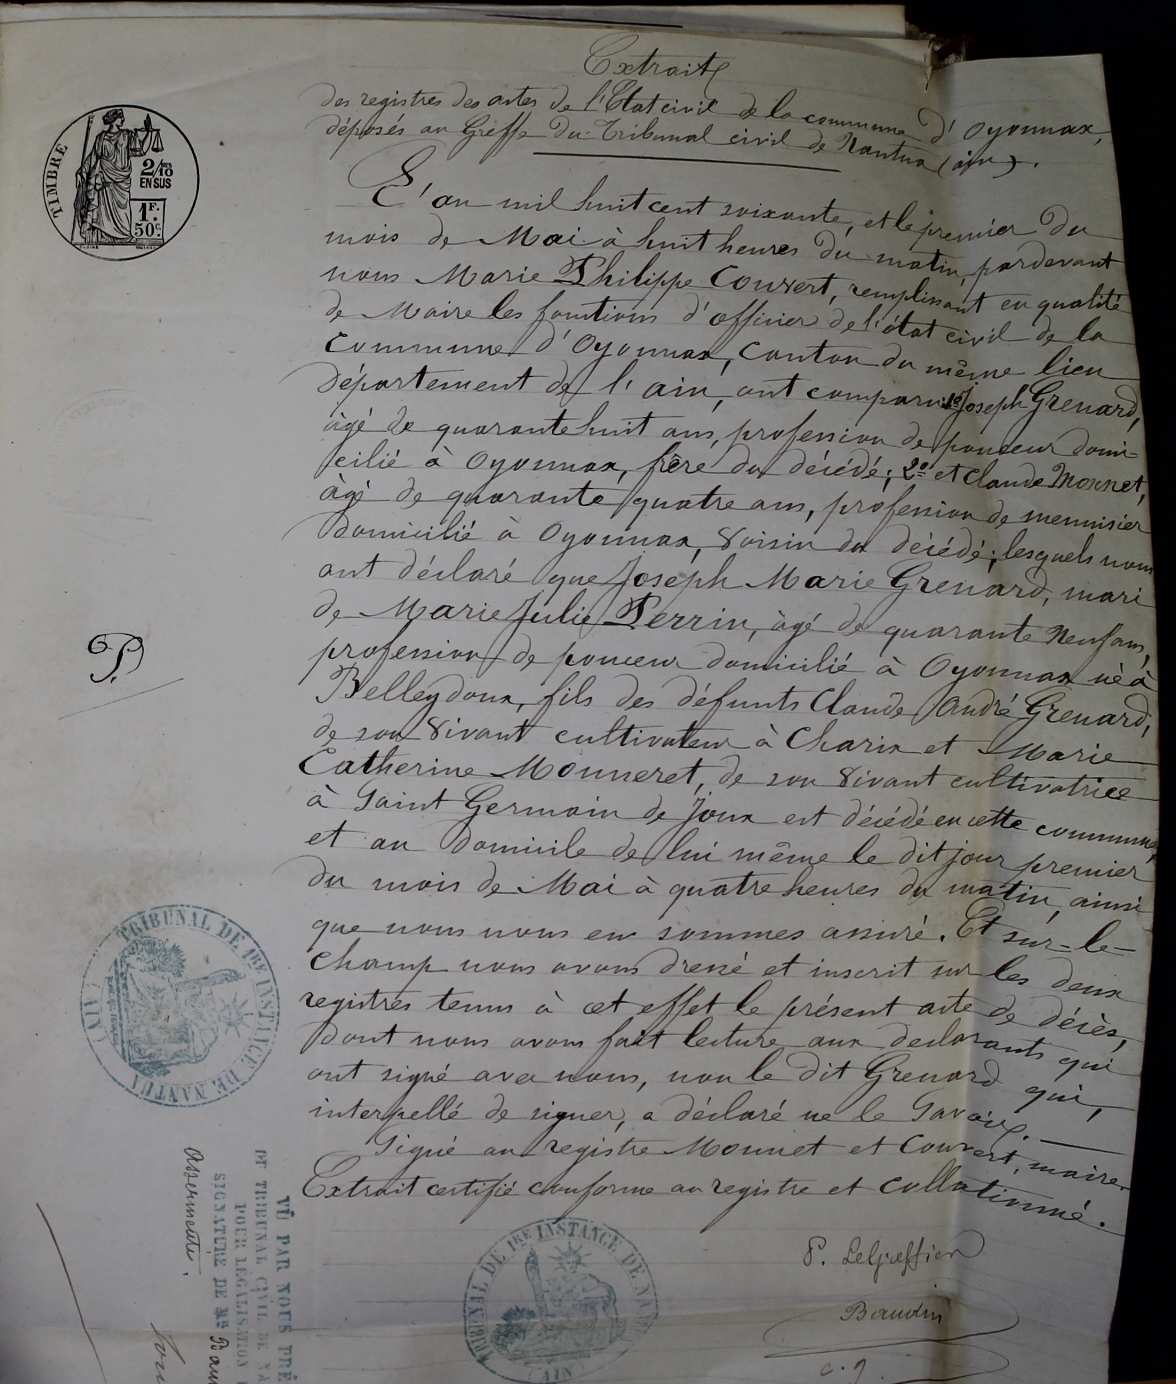 Extrait
des registres des actes de l'Etat civil de la commune d'Oyonnax,
déposés au Greffe du Tribunal civil de Nantua (ain).
L'an mil huit cent soixante, et le premier du
mois de Mai à huit heures du matin, pardevant
nous Marie Philippe Couvert, remplissant en qualité
de Maire les fonctions d'officier de l'état civil de la
Commune d'Oyonnax, Canton du même lieu
département de l'ain, ont comparu 1º Joseph Grenard,
âgé de quarante huit ans, profession de ponceur domi-
cilié à Oyonnax, frère du décédé; 2º et Claude Monnet,
âgé de quarante quatre ans, profession de menuisier
domicilié à Oyonnax, Voisin du décédé; lesquels nous
ont déclaré que Joseph Marie Grenard, mari
de Marie Julie Perrin, âgé de quarante Neuf ans,
profession de ponceur domicilié à Oyonnax né à
Belleydoux, fils des défunts Claude André Grenard,
de son Vivant cultivateur à Charix et Marie
Catherine Monneret, de son Vivant cultivatrice
à Saint Germain de Joux est décédé en cette commune,
et au domicile de lui même le dit jour premier
du mois de Mai à quatre heures du matin, ainsi
que nous nous en sommes assuré. Et sur-le-
champ nous avons dressé et inscrit sur les deux
registres tenus à cet effet le présent acte de décès,
dont nous avons fait lecture aux declarants qui
ont signé avec nous, non le dit Grenard qui,
interpellé de signer, a déclaré ne le Savoir.
Signé au registre Monnet et Couvert, maire.
Extrait certifié conforme au registre et collationné.
P. Le Greffier
Baudin
c. g.
TIMBRE
2/10
EN SUS
1F.
50c.
P.
TRIBUNAL DE 1RE INSTANCE DE NANTUA
(AIN)
VU PAR NOUS PRÉ
DU TRIBUNAL CIVIL DE NA
POUR LÉGALISATION
SIGNATURE DE Mr Bau
Assermenté.
TRIBUNAL DE 1RE INSTANCE DE NAN
(AIN)